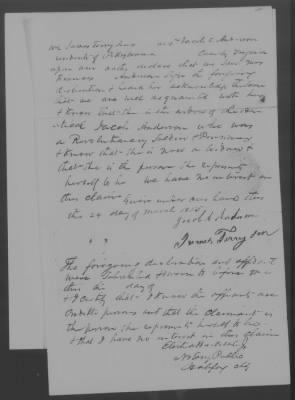 We James Terry Senr and Jacob C Anderson
residents of Pittsylvania County Virginia
upon our oaths declare that we saw Mrs
Anderson sign the foregoing
declaration & heard her acknowledge the same
that we are well acquainted with her
& know that she is the widow of the
Jacob Anderson who was
a Revolutionary soldier & Pensioner
& know that she is now a widow &
that she is the person she represents
herself to be We have no interest in
this claim Given under our hand this
the 24 day of March 1855
Jacob C Anderson
James Terry senr
The foregoing declaration and affidavit
were Subscribed & sworn to before me
this the day of
& I Certify that I know the affiants are
Creditable persons and that the claimant is
the person she represents herself to be
& that I have no interest in this claim
Notary Public
Halifax Cty